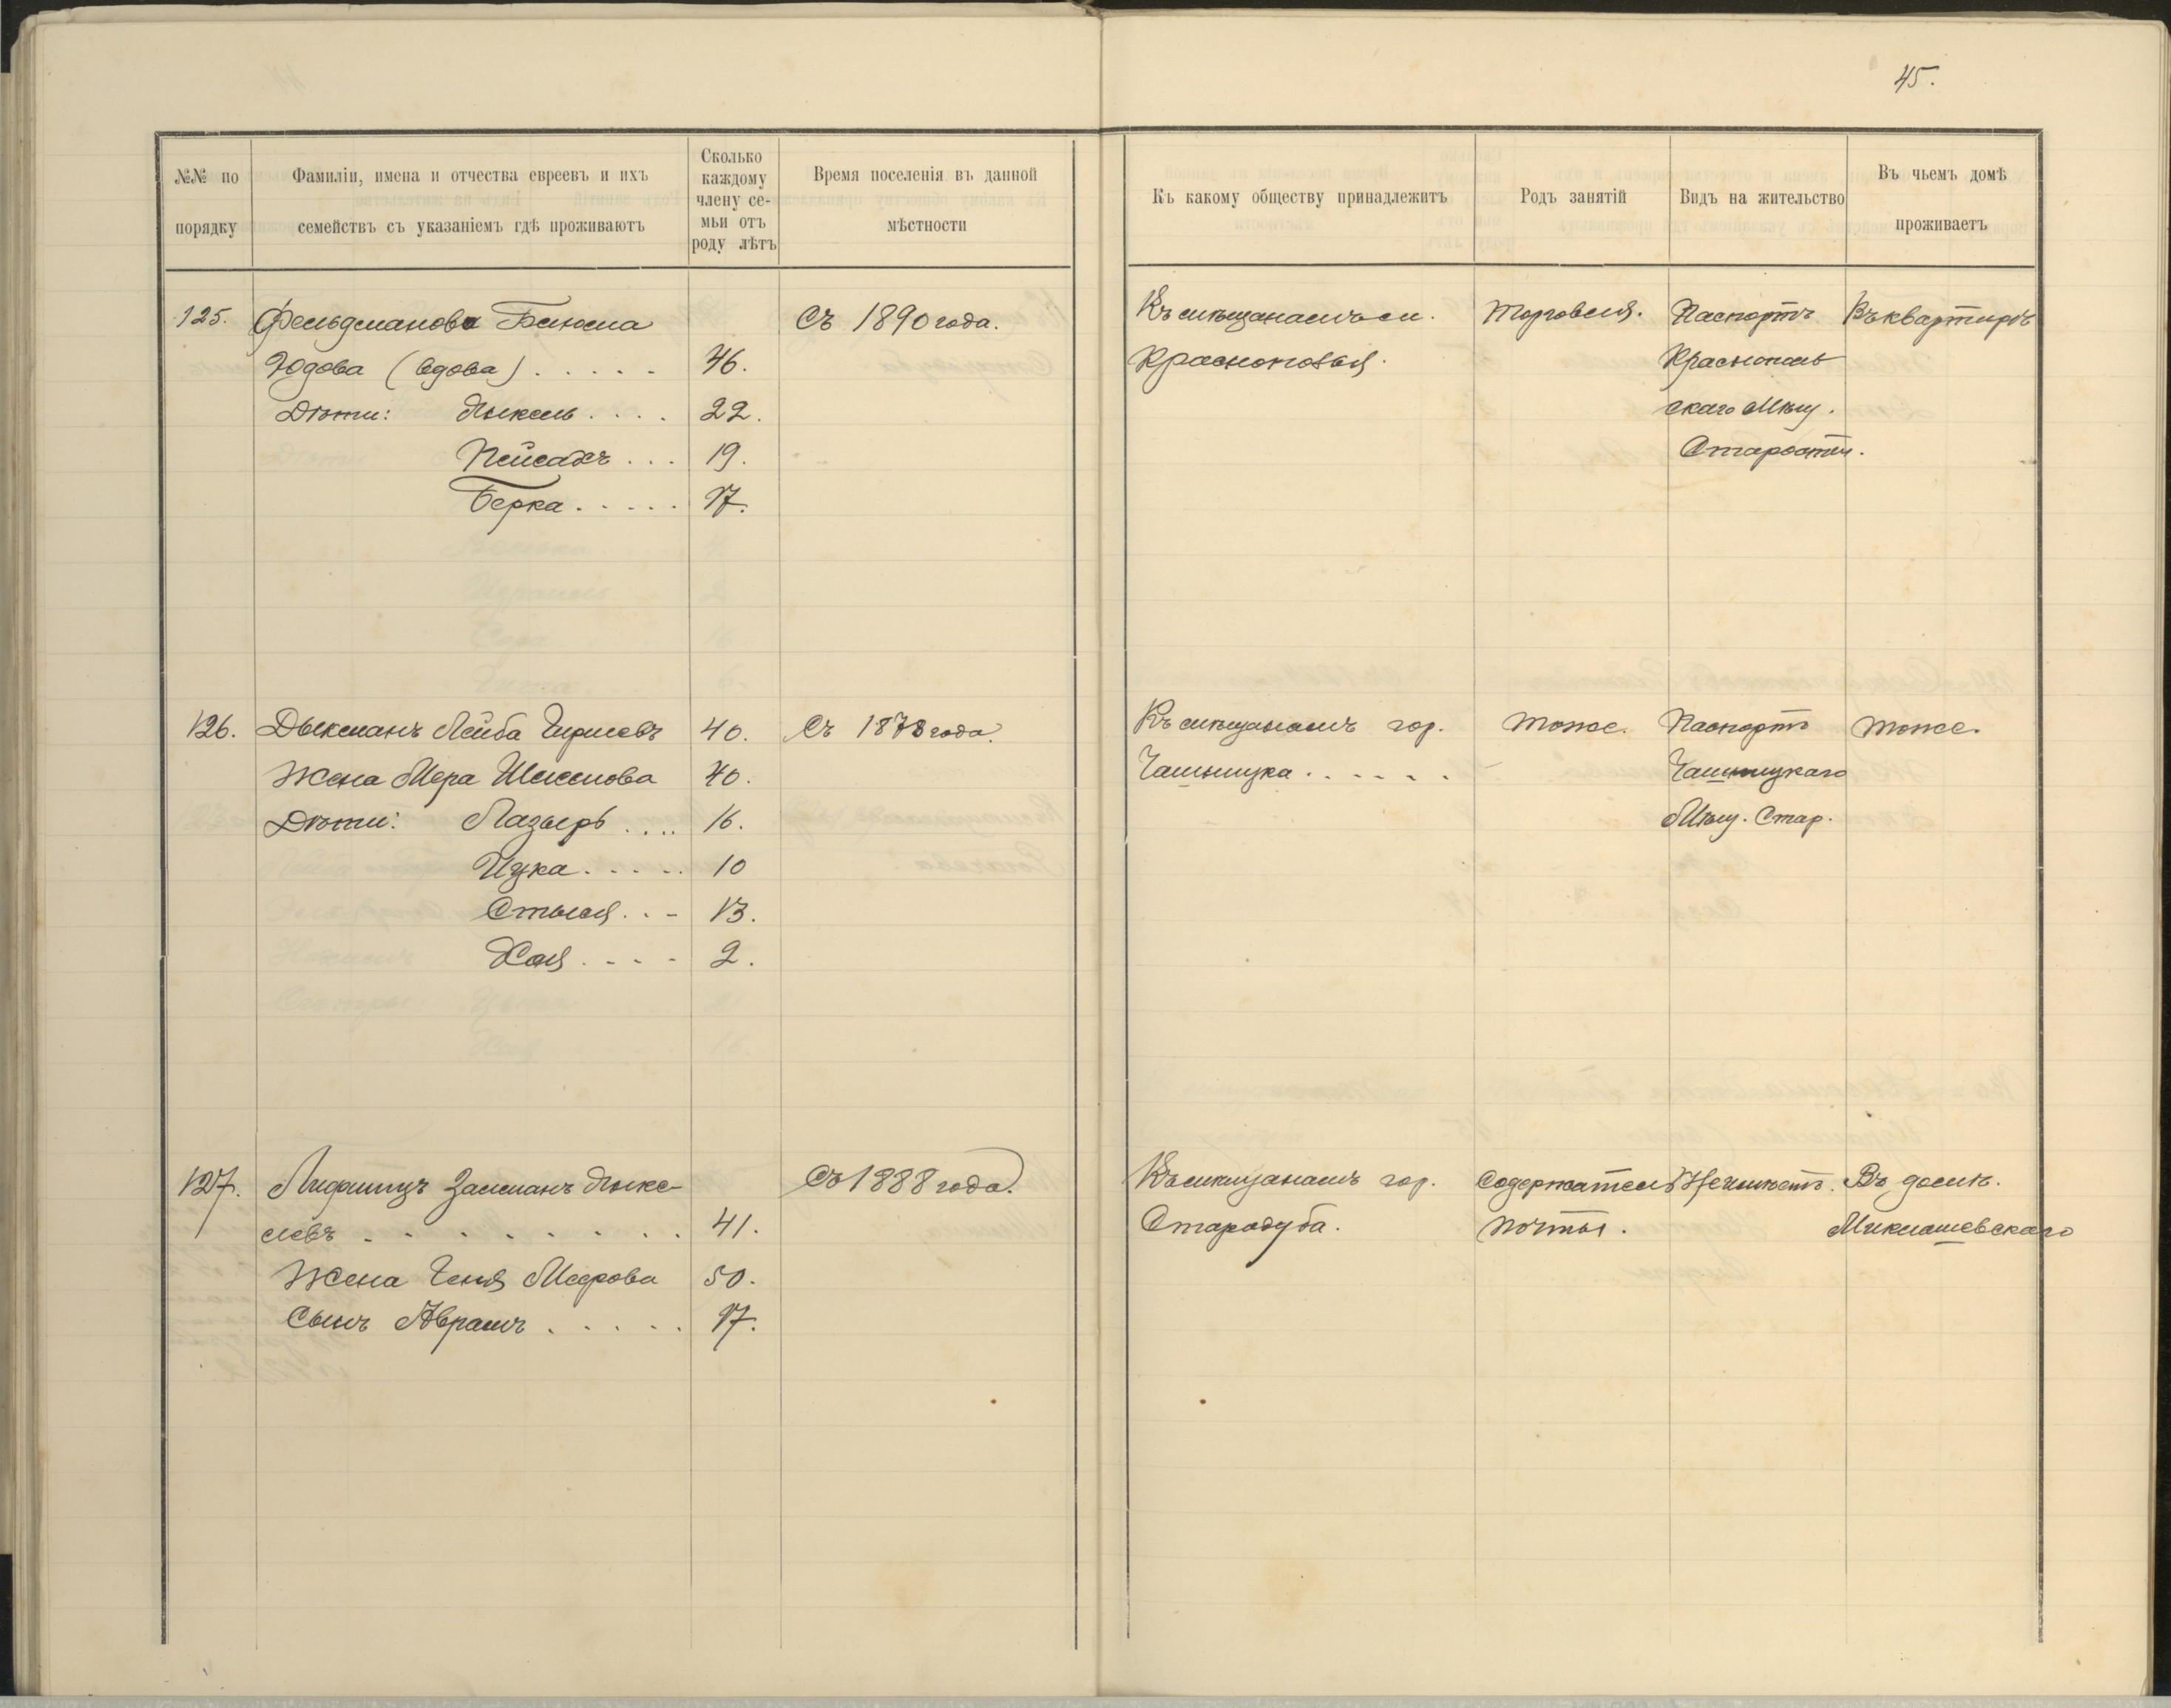 45.
№№ по порядку
Фамиліи, имена и отчества евреевъ и ихъ семействъ съ указаніемъ гдѣ проживаютъ
Сколько каждому члену семьи отъ роду лѣтъ
Время поселенія въ данной мѣстности
Къ какому обществу принадлежитъ
Родъ занятій
Видъ на жительство
Въ чьемъ домѣ проживаетъ
125. Фельдманова Блюма Съ 1890 года. Къ мѣщанамъ м. Торговля. Паспортъ Въ квартирѣ
Юдова (вдова) . . . . . 46. Краснополья. Краснополь
Дѣти: . . . . 22. скаго Мѣщ.
Пейсахъ . . . 19. Старосты.
Берка . . . . . 17.
126. Дыкманъ Лейба Гиршевъ 40. Съ 1878 года. Къ мѣщанамъ гор. Тоже. Паспортъ Тоже.
Жена Мера 40. . . . . . .
Дѣти: Лазырь . . . . 16. Мѣщ. Стар.
Ицка . . . . . 10
. . - 13.
Хая . - - - 2.
127. Лифшицъ Залманъ Съ 1888 года. Къ мѣщанамъ гор. Содержатель Неимѣетъ. Въ домѣ.
левъ . . . . . . . . 41. Стародуба. почты. Миклашевскаго
Жена Геня Меерова 50.
Сынъ Абрамъ . . . . . 17.